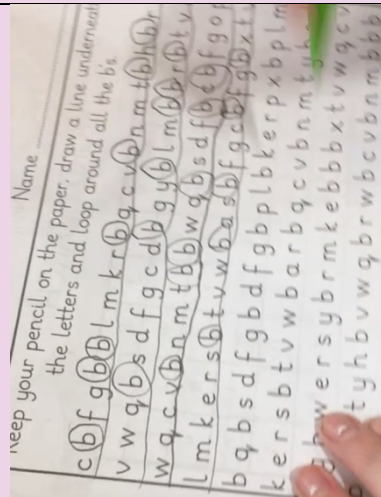 Name
Keep your pencil on the paper, draw a line underneath
the letters and loop around all the b's.
c b f g b b l m k r b q c v b n m t b h b r
v w q b s d f g c d b g y b l m b b r b t v
w q c v b n m t b b w q b s d f b c b f g o f
l m k e r s b t v w b a s b f g c b f g b x t v
b q b s d f g b d f g b p l b k e r p x b p l m
k e r s b t v w b a r b q c v b n m t y h
w e r s y b r m k e b b b x t v w q c v
t y h b v w q b r w b c v b n m b b b